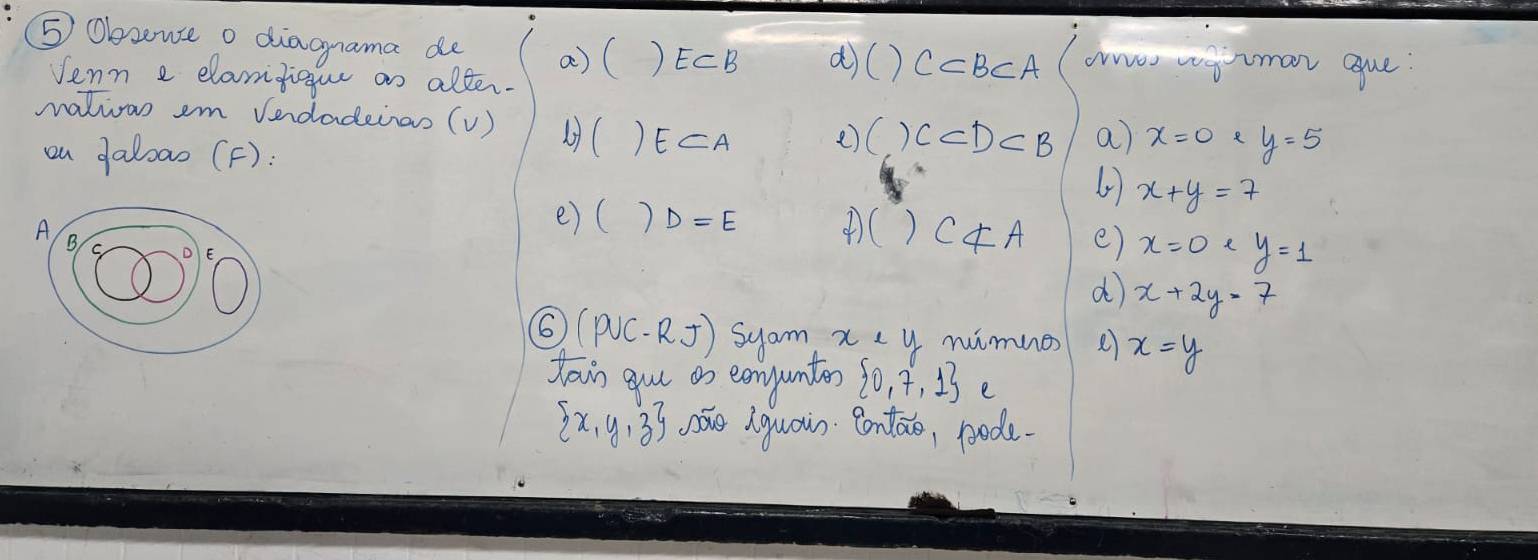 5 Observe o diagrama de
Venn e classifique as alter-
nativas em Verdadeiras (V)
ou falsas (F):
A B C D E
a) ( ) E⊂B
b) ( ) E⊂A
c) ( ) D = E
d) ( ) C⊂B⊂A
e) ( ) C⊂D⊂B
f) ( ) C⊄A
6 (PUC-RJ) Sejam x e y números
tais que os conjuntos {0, 7, 1} e
{x, y, 3} são iguais. Então, pode-
mos afirmar que:
a) x=0 e y=5
b) x+y=7
c) x=0 e y=1
d) x+2y=7
e) x=y